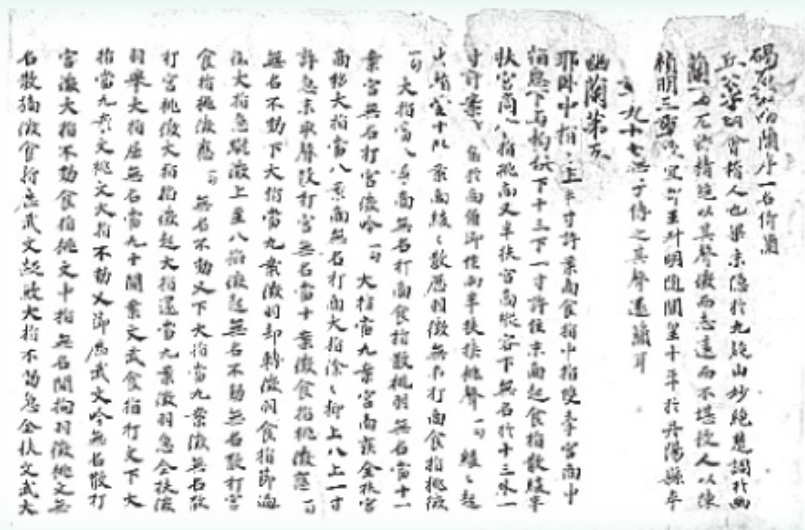 碣石調幽蘭序一名倚蘭
丘公字明會稽人也梁末隱於九疑山妙絕楚調於幽
蘭一曲尤特精絕以其聲微而志遠而不堪授人以陳
禎明三年授宜都王叔明隨開皇十年於丹陽縣卒
年九十七無子傳之其聲遂簡耳
幽蘭第五
耶臥中指上半寸許案商食指中指雙牽宮商中
指急下與拘俱下十三下一寸許住末商起食指散緩半
扶宮商食指挑商又半扶宮商縱容下無名於十三外一
寸許案商角於商角即作兩半扶挾挑聲一句緩〻起
無名當十案商緩〻散歷羽徵無名打商食指挑徵
一句大指當八案商無名打商食指散挑羽無名當十一
案宮無名打宮徵吟一句大指當九案宮商疾全扶宮
商移大指當八案商無名打商大指徐〻抑上八上一寸
許急末取聲散打宮無名當十案徵食指挑徵應一句
無名不動下大指當九案徵羽却轉徵羽食指節過
徵大指急蹴徵上至八指微起無名不動無名散打宮
食指挑徵應一句無名不動又下大指當九案徵無名散
打宮挑徵大指挑徵起大指還當九案徵羽急全扶徵
羽舉大指屈無名當九十間案文武食指打文下大
指當九案文挑文大指不動又節歷武文吟無名散打
宮徵大指不動食指挑文中指無名間拘羽徵挑文無
名散摘徵食指歷武文起大指不動急全扶文武大